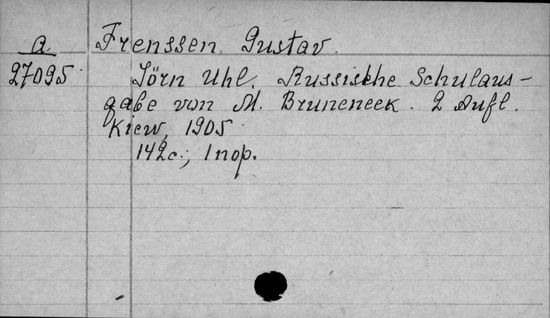 a Frenssen, Gustav.
27095 Jörn Uhl. Russische Schulaus-
gabe von M. Bruneneek. 2 Aufl.
Kiew, 1905
142c.; 1 пор.